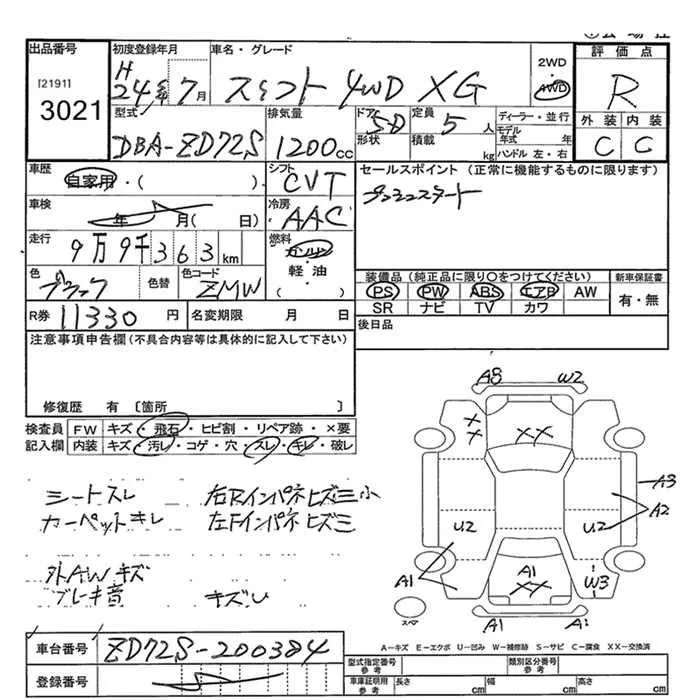 出品番号 初度登録年月 車名・グレード 2WD 評価点
[2191] 3021 H24年7月 スイフト 4WD XG 4WD R
外装 内装
C C
型式 排気量 ドア形状 定員積載 ディーラー・並行
DBA-ZD72S 1200cc 5D 5人 kg モデル年式 年
ハンドル 左・右
車歴 シフト セールスポイント (正常に機能するものに限ります)
自家用・( ) CVT プッシュスタート
車検 年 月( 日) 冷房 AAC
走行 9万9千363km 燃料 ガソリン・軽油 ( )
色 ブラック 色替 色コード ZMW
装備品 (純正品に限り○をつけてください) 新車保証書
PS PW ABS エアB AW 有・無
SR ナビ TV カワ
R券 11330円 名変期限 月 日 後日品
注意事項申告欄(不具合内容等は具体的に記入して下さい)
修復歴 有 〔箇所 〕
検査員 FW キズ・飛石・ヒビ割・リペア跡・×要
記入欄 内装 キズ・汚レ・コゲ・穴・スレ・キレ・破レ
シートスレ 右Rインパネヒズミ小
カーペットキレ 左Fインパネヒズミ
外AWキズ
ブレーキ音 キズレ
A8 W2
XX XX
A3
A2
U2 U2
A1 A1 XX W3
スペア A1 A1
A-キズ E-エクボ U-凹み W-補修跡 S-サビ C-腐食 XX-交換済
車台番号 ZD72S-200384
登録番号
型式指定番号 参考 類別区分番号 参考
車庫証明用 参考 長さ cm 幅 cm 高さ cm